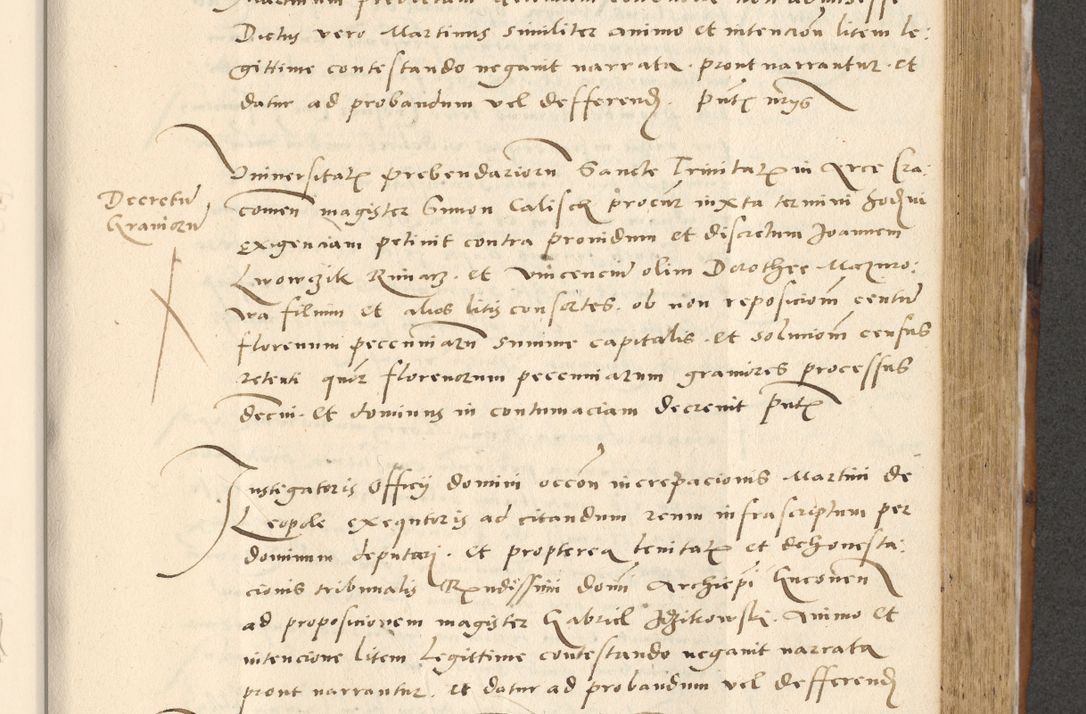 Dictus vero Martinus similiter animo et intencion litem le:
gittime contestando negavit narrata prout narrantur. et
datur ad probandum vel defferend. pntz mrys
Decretu
Granioru
Universitatz prebendariorn Sancte Trinitatz in Arce Cra:
comen magister Simon Calisch procur iuxta termini hodiei
exigenciam petivit contra providum et discretum Joannem
Lwowczik Rimarz. et Vincenciu olim Dorothee Mazuro:
wa filium et alios litis consortes. ob non reposiciom centu
florenum peccuniarn summe capitalis. et soluciom census
retenti quor florenorum peccuniarum graviores processus
decni. et dominus in contumaciam decrevit pntz
Instigatoris Officy domini occon increpacionis Martini de
Leopole exequtoris ad citandum reum infrascriptum per
dominum deputati. et propterea levitatz et dehonesta:
cionis tribunalis Rxndissimi domi Archiepi Gneznen
ad proposicionem magister Gabriel Zitkowski. Animo et
intencione litem legittime contestando negavit narrata
prout narrantur. et datur ad probandum vel defferend